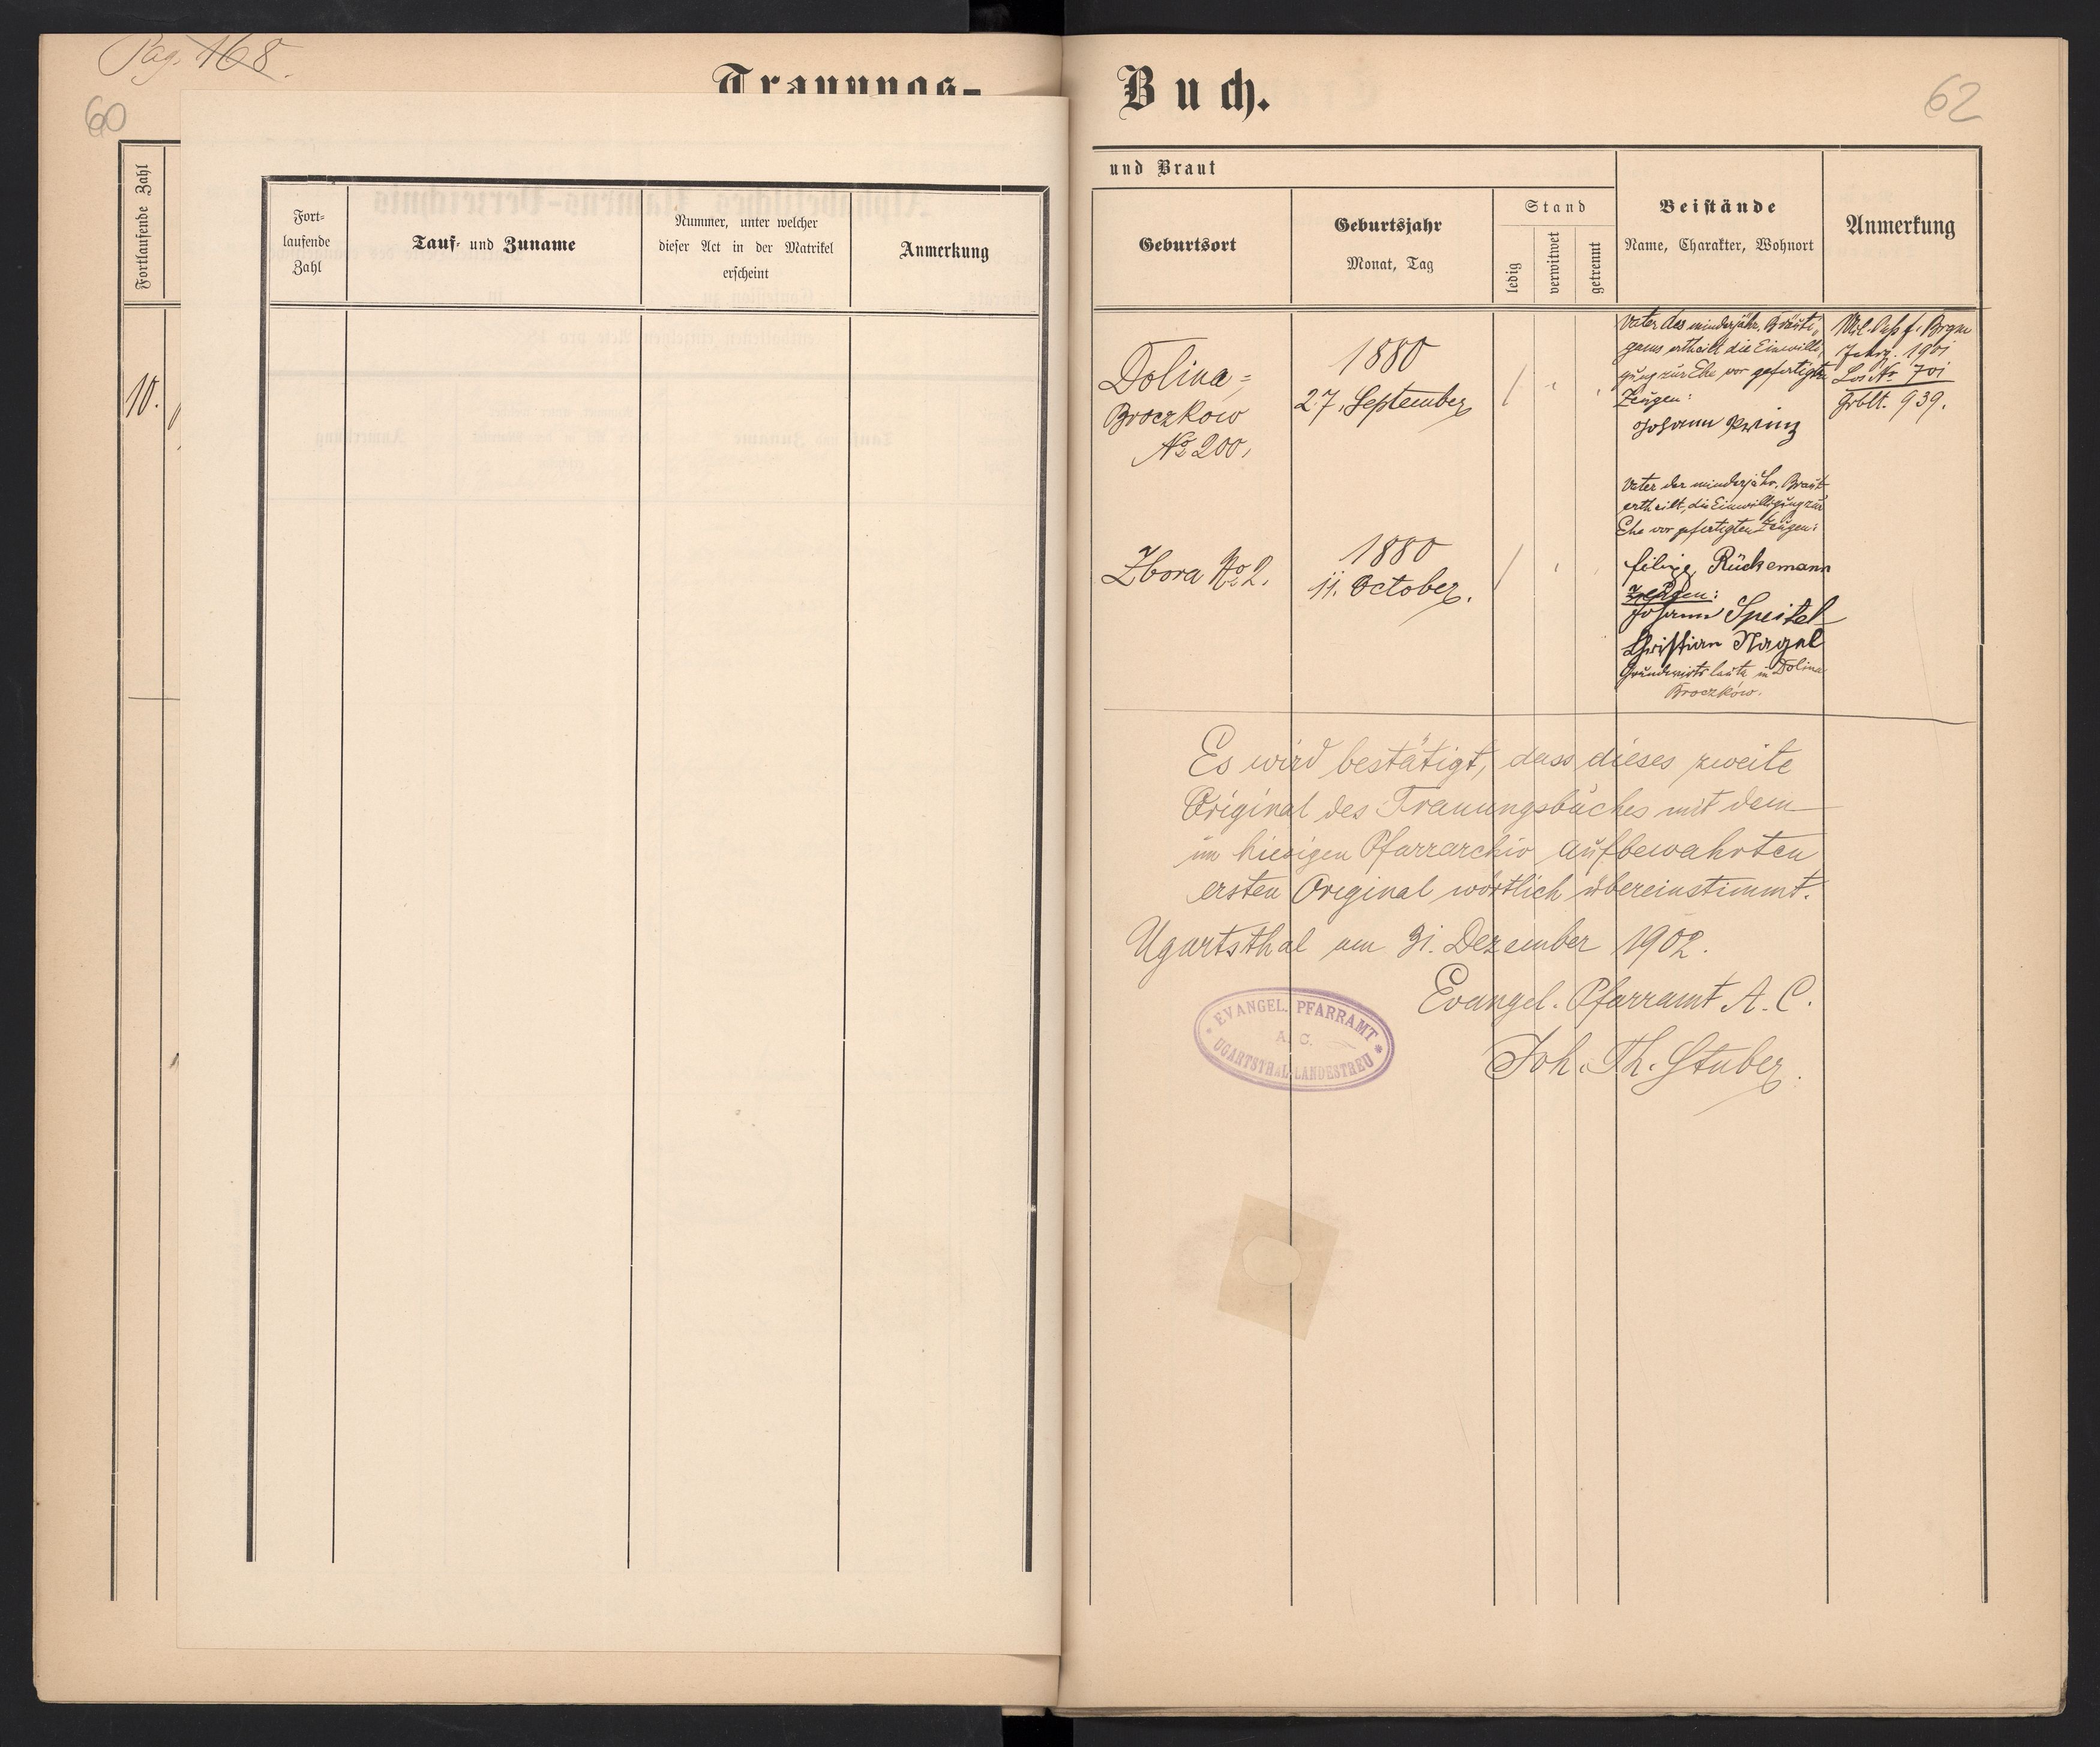 Pag. 168.
60
Trauungs-
Fortlaufende Zahl
10.
Fort-
laufende
Zahl
Tauf- und Zuname
Nummer, unter welcher
dieser Act in der Matrikel
erscheint
Anmerkung
Buch.
62
und Braut
Geburtsort
Geburtsjahr
Monat, Tag
Stand
ledig
verwitwet
getrennt
Beistände
Name, Charakter, Wohnort
Anmerkung
Dolina=
Broczkow
No 200,
1880
27. September
Vater des minderjähr. Bräuti-
gams ertheilt die Einwilli-
gung zur Ehe vor gefertigten
Zeugen:
Johann
1901
Los No 701
939.
Vater der minderjähr. Braut
ertheilt, die Einwilligung zur
Ehe vor gefertigten Zeugen:
Zbora No 2.
1880
11. October.
Rückemann
Zeugen:
Johann Speitel
Christian Nagel
Grundwirtsleute in Dolina
Broczków.
Es wird bestätigt, dass dieses zweite
Original des Trauungsbuches mit dem
im hiesigen Pfarrarchiv aufbewahrten
ersten Original wörtlich übereinstimmt.
Ugartsthal am 31. Dezember 1902.
Evangel. Pfarramt A. C.
EVANGEL. PFARRAMT
A. C.
UGARTSTHAL-LANDESTREU
Joh. Th. Stuber.